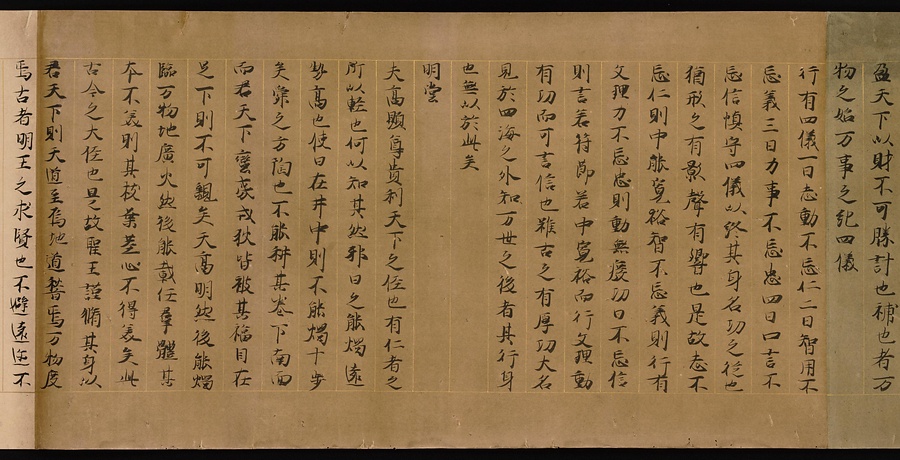 盈天下以財不可勝計也補也者万
物之始万事之紀四儀
行有四儀一曰志動不忘仁二曰智用不
忘義三曰力事不忘忠四曰口言不
忘信慎守四儀以終其身名功之從也
猶形之有影聲有嚮也是故志不
忘仁則中能寬裕智不忘義則行有
文理力不忘忠則動無廢功口不忘信
則言若符節若中寬裕而行文理動
有功而可言信也雖古之有厚功大名
見於四海之外知万世之後者其行身
也無以於此矣
明堂
夫高顯尊貴利天下之侄也有仁者之
所以輕也何以知其然耶日之能燭遠
勢高也使日在井中則不能燭十步
矣舜之方陶也不能利其巷下南面
而君天下蠻夷戎狄皆被其福目在
足下則不可視矣天高明然後能燭
臨万物地廣大然後能載任羣體其
本不美則其枝葉莖心不得美矣此
古今之大侄也是故聖王謹脩其身以
君天下則天道至焉地道稽焉万物度
焉古者明王之求賢也不避遠近不